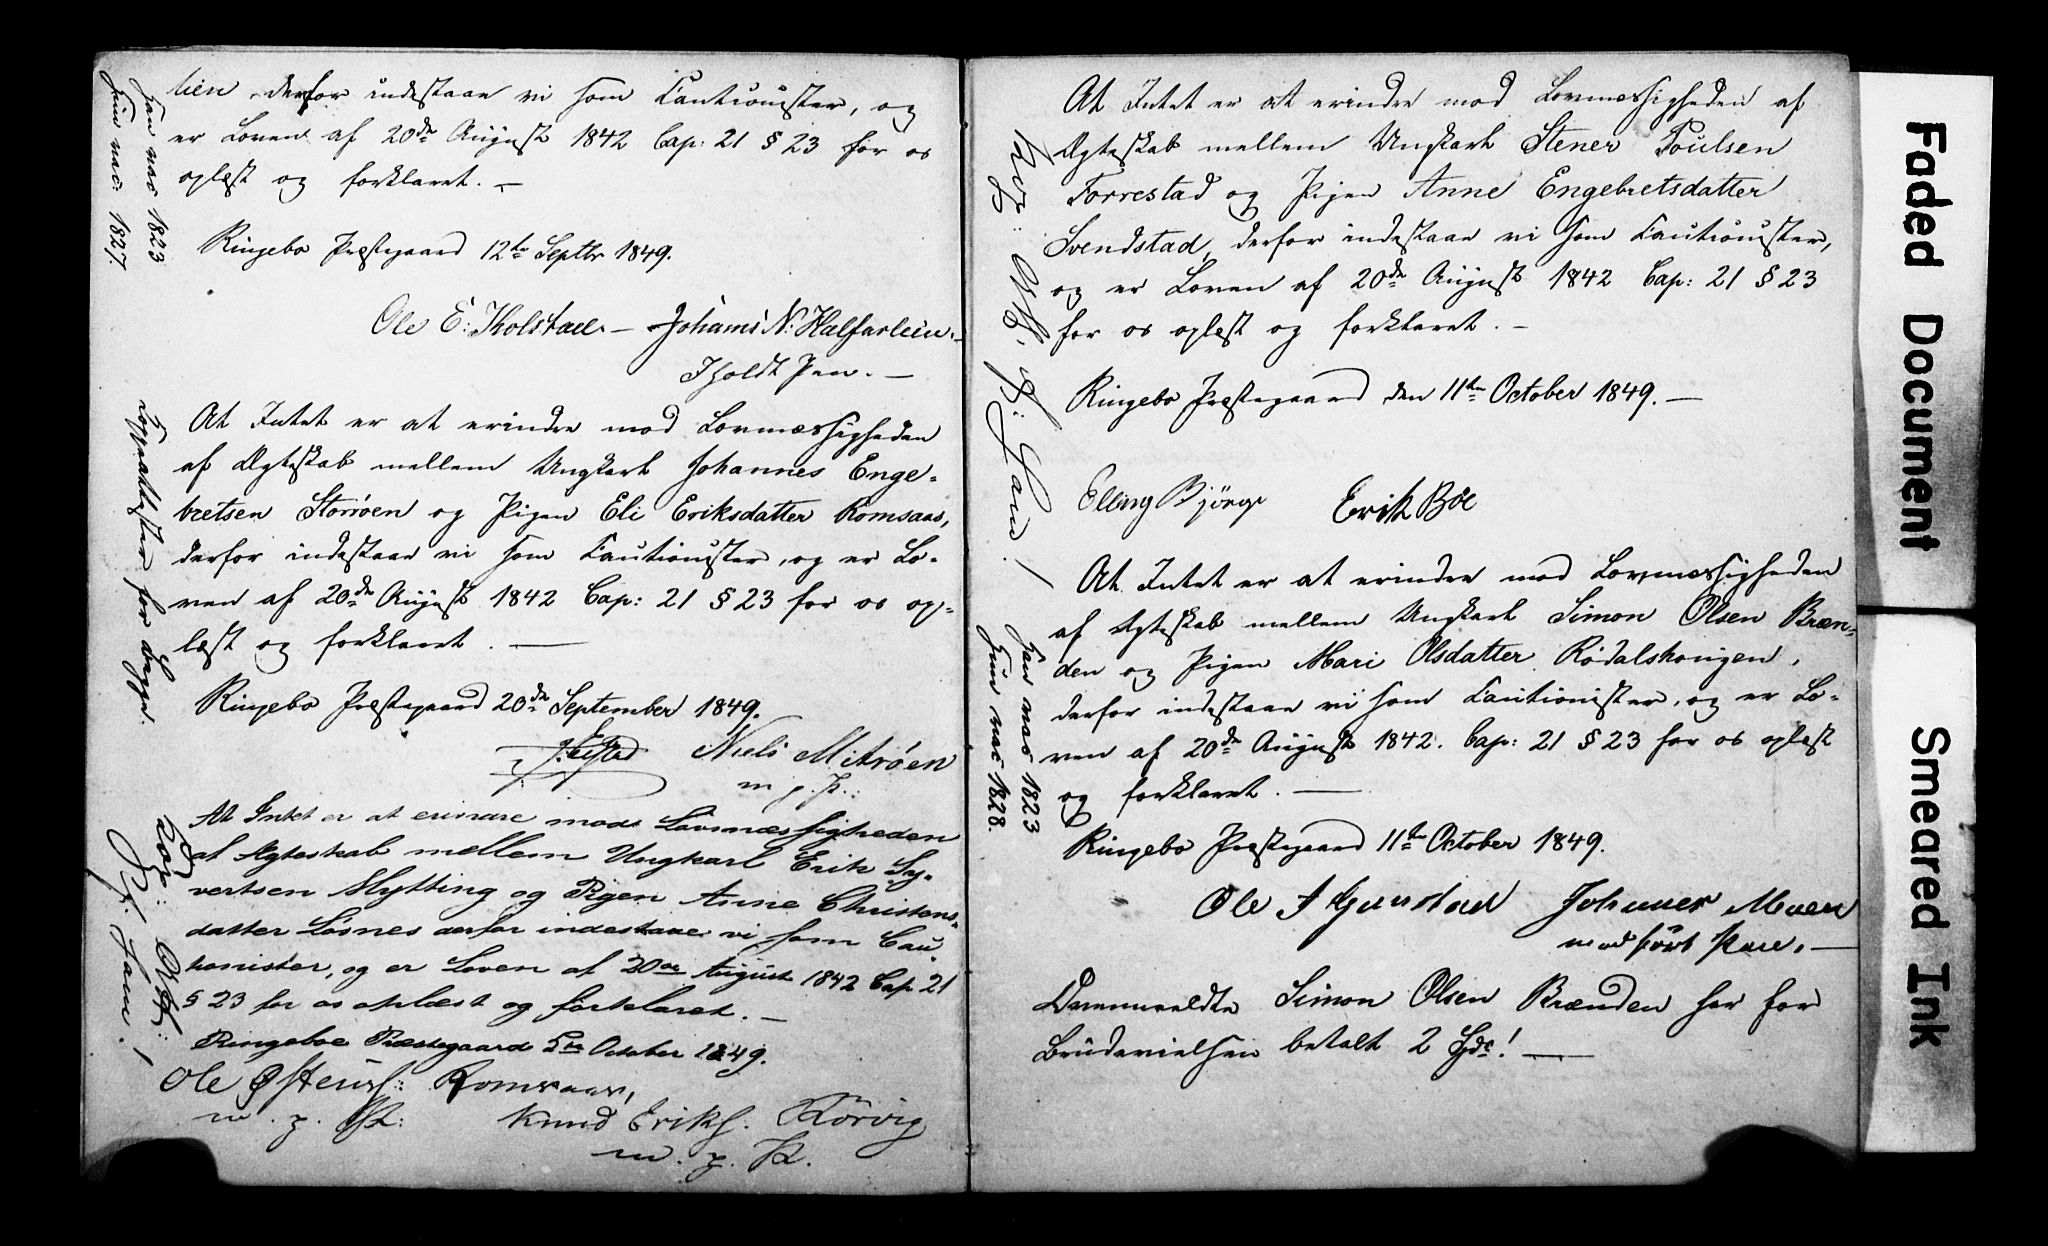 lien derfor indestaae vi som Cautionister, og
er Loven af 20de August 1842 Cap: 21 § 23 for os
oplæst og forklaret. —
Ringebo Præstegaard 12te Septbr 1849.
Ole E: Kolstad. — Johans N: Halfarlien.
Iholdt Pen. —
han vac 1823
hun vac: 1827.
At Intet er at erindre mod Lovmæssigheden
af Ægteskab mellem Ungkarl Johannes Enge-
bretsen Storøen og Pigen Eli Eriksdatter Romsaas,
derfor indestaae vi som Cautionister, og er Lo-
ven af 20de August 1842 Cap: 21 § 23 for os op-
læst og forklaret. —
Ringebo Præstegaard 20de September 1849.
Niels Mitrøen
m. p. P.:
for begge.
At Intet er at erindre mod Lovmæssigheden
af Ægteskab mellem Ungkarl Erik Sy-
vertsen Mytting og Pigen Anne Christens-
datter Løsnes derfor indestaae vi som Cau-
tionister, og er Loven af 20de August 1842 Cap 21
§ 23 for os oplæst og forklaret. —
Ringeboe Præstegaard 5te October 1849.
Ole Østensf: Romsaas,
m. p. P:
Knud Eriks. Kørvig
m. p. P.
At Intet er at erindre mod Lovmæssigheden af
Ægteskab mellem Ungkarl Stener Poulsen
Forrestad og Pigen Anne Engebretsdatter
Svendstad, derfor indestaae vi som Cautionister,
og er Loven af 20de August 1842 Cap: 21 § 23
for os oplæst og forklaret. —
Ringebo Præstegaard den 11te October 1849. —
Elling Bjørge Erik Bøe
At Intet er at erindre mod Lovmæssigheden
af Ægteskab mellem Ungkarl Simon Olsen Bræn-
den og Pigen Mari Olsdatter Rødalshougen,
derfor indestaae vi som Cautionister, og er Lo-
ven af 20de August 1842. Cap: 21 § 23 for os oplæst
og forklaret. —
han vac 1823
hun vac 1828.
Ringebo Præstegaard 11te October 1849.
Ole Johannes Moen
med ført Pen. —
Ovenmeldte Simon Olsen Brænden har for
Brudevielsen betalt 2 Spd! —
Faded Document
Smeared Ink